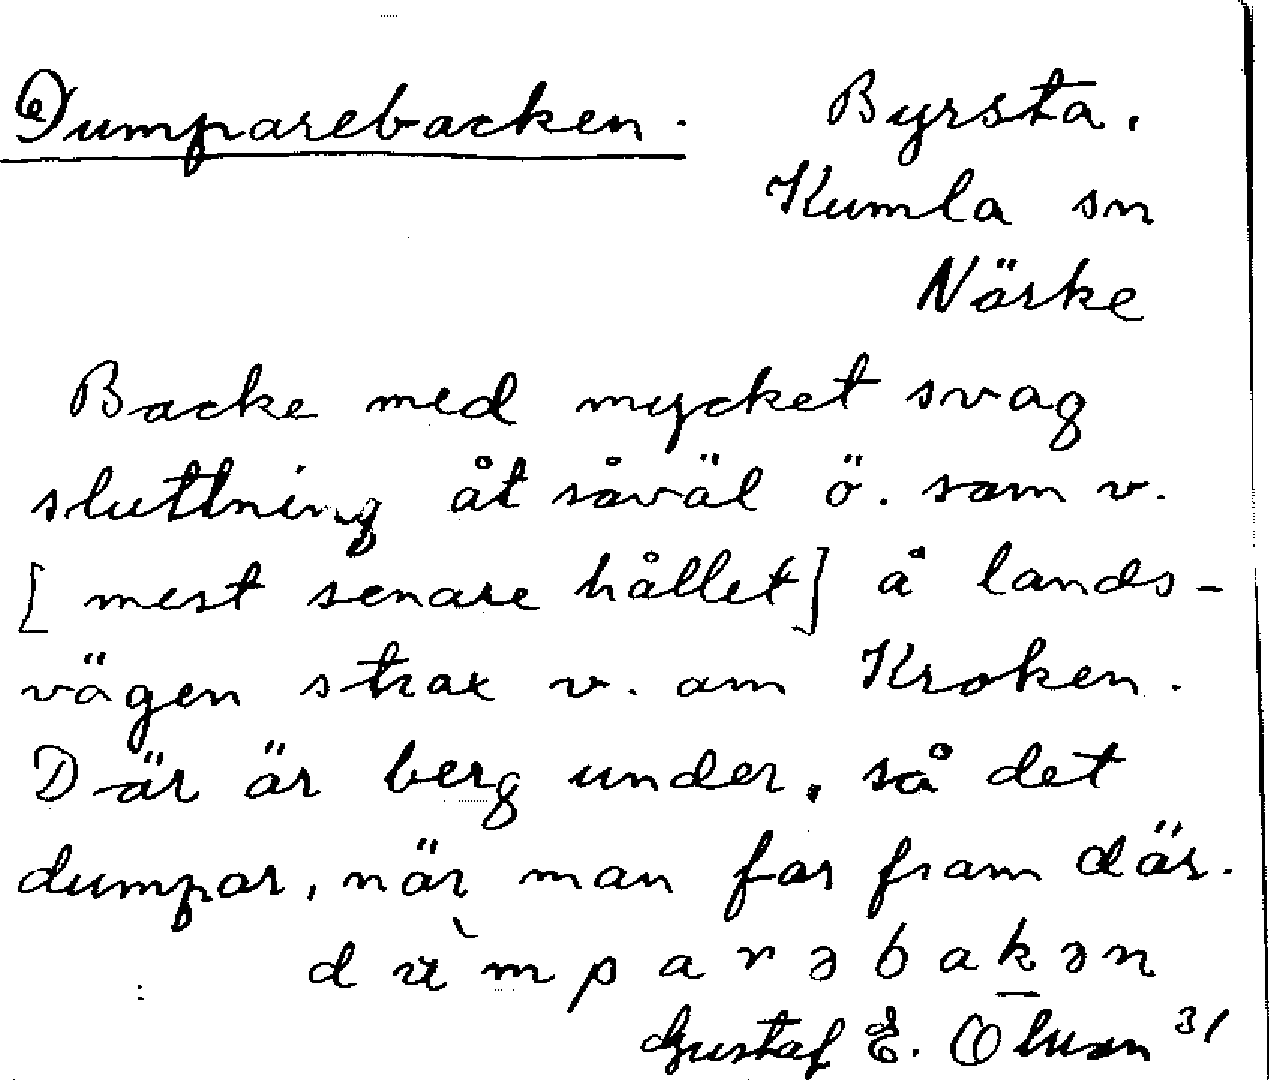 Dumparebacken. Byrsta.
Kumla sn
Närke
Backe med mycket svag
sluttning åt såväl ö. som v.
[mest senare hållet] å lands-
vägen strax v. om Kroken.
Där är berg under, så det
dumpar, när man far fram där.
dumparəbakən
Gustaf E. Olsson 31